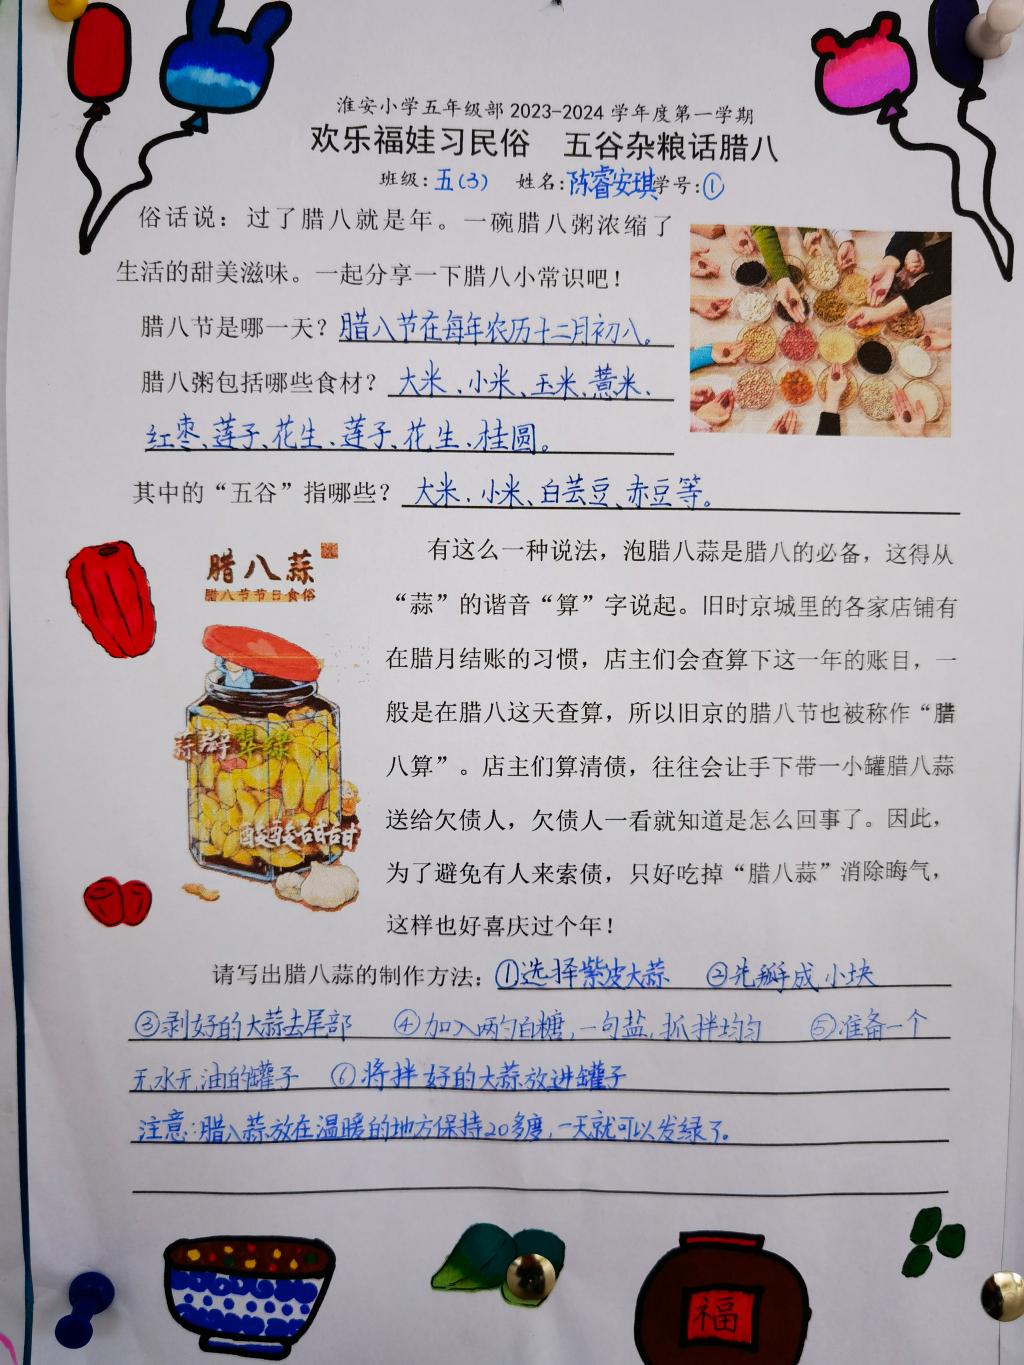 淮安小学五年级部 2023-2024 学年度第一学期
欢乐福娃习民俗 五谷杂粮话腊八
班级:五(3) 姓名:陈睿安琪学号:①
俗话说：过了腊八就是年。一碗腊八粥浓缩了
生活的甜美滋味。一起分享一下腊八小常识吧！
腊八节是哪一天？腊八节在每年农历十二月初八。
腊八粥包括哪些食材？大米、小米、玉米、薏米、
红枣、莲子、花生、莲子、花生、桂圆。
其中的“五谷”指哪些？大米、小米、白芸豆、赤豆等。
腊八蒜
腊八节节日食俗
蒜瓣翠绿
酸酸甜甜
有这么一种说法，泡腊八蒜是腊八的必备，这得从
“蒜”的谐音“算”字说起。旧时京城里的各家店铺有
在腊月结账的习惯，店主们会查算下这一年的账目，一
般是在腊八这天查算，所以旧京的腊八节也被称作“腊
八算”。店主们算清债，往往会让手下带一小罐腊八蒜
送给欠债人，欠债人一看就知道是怎么回事了。因此，
为了避免有人来索债，只好吃掉“腊八蒜”消除晦气，
这样也好喜庆过个年！
请写出腊八蒜的制作方法：①选择紫皮大蒜 ②先掰成小块
③剥好的大蒜去尾部 ④加入两勺白糖,一勺盐,抓拌均匀 ⑤准备一个
无水无油的罐子 ⑥将拌好的大蒜放进罐子
注意:腊八蒜放在温暖的地方保持20多度,一天就可以发绿了。
福